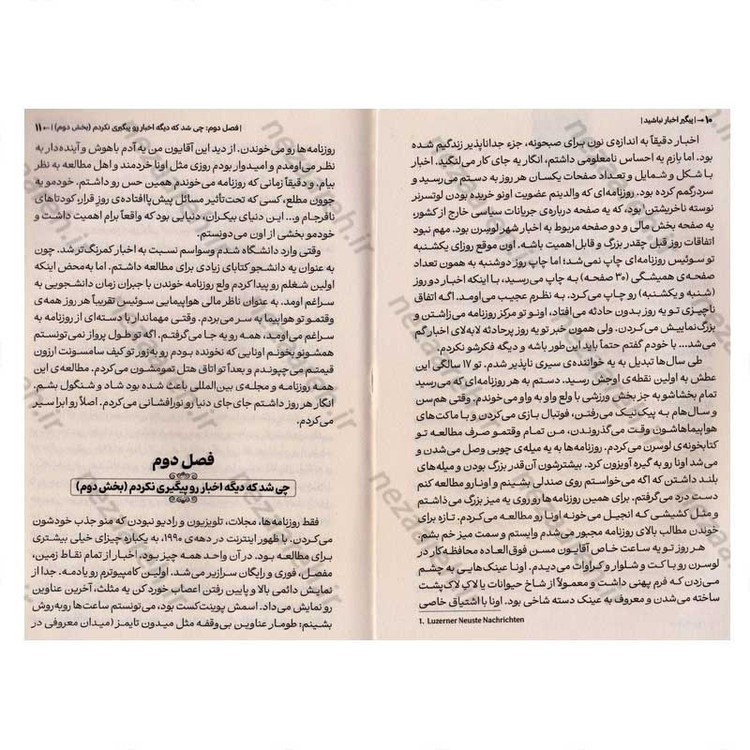 ۱۰ ← | پیگیر اخبار نباشید |
اخبار دقیقاً به اندازه‌ی نون برای صبحونه، جزء جدا‌ناپذیر زندگیم شده
بود. اما بازم یه احساس نامعلومی داشتم، انگار یه جای کار می‌لنگید. اخبار
با شکل و شمایل و تعداد صفحات یکسان هر روز به دستم می‌رسید و
سردرگمم کرده بود. روزنامه‌ای که والدینم عضویت اونو خریده بودن لوتسرنر
نوسته ناخریشتن¹ بود، که یه صفحه درباره‌ی جریانات سیاسی خارج از کشور،
یه صفحه بخش مالی و دو صفحه مربوط به اخبار شهر لوسرن بود. مهم نبود
اتفاقات روز قبل چقدر بزرگ و قابل‌اهمیت باشه. اون موقع روزای یکشنبه
تو سوئیس روزنامه‌ای چاپ نمی‌شد؛ اما چاپ روز دوشنبه به همون تعداد
صفحه‌ی همیشگی (۳۰ صفحه) به چاپ می‌رسید، با اینکه اخبار دو روز
(شنبه و یکشنبه) رو چاپ می‌کرد. به نظرم عجیب می‌اومد. اگه اتفاق
ناچیزی تو یه روز بدون حادثه می‌افتاد، اونو تو مرکز روزنامه می‌زاشتن و
بزرگ‌نماییش می‌کردن. ولی همون خبر تو یه روز پرحادثه لابه‌لای اخبار گم
می‌شد... با خودم گفتم حتماً باید این طور باشه و دیگه فکرشو نکردم.
طی سال‌ها تبدیل به یه خواننده‌ی سیری ناپذیر شدم. تو ۱۷ سالگی این
عطش به اولین نقطه‌ی اوجش رسید. دستم به هر روزنامه‌ای که می‌رسید
تمام بخشاشو به جز بخش ورزشی با ولع واو به واو می‌خوندم. وقتی هم‌سن
و سال‌هام به پیک‌نیک می‌رفتن، فوتبال بازی می‌کردن و با ماکت‌های
هواپیماهاشون وقت می‌گذروندن، من تمام وقتمو صرف مطالعه تو
کتابخونه‌ی لوسرن می‌کردم. روزنامه‌ها به یه میله‌ی چوبی وصل می‌شدن و
می‌شد اونا رو به گیره آویزون کرد. بیشترشون آن‌قدر بزرگ بودن و میله‌های
بلند داشتن که اگه می‌خواستم روی صندلی بشینم و اونا رو مطالعه کنم
دست درد می‌گرفتم. برای همین روزنامه‌ها رو روی یه میز بزرگ می‌ذاشتم
و مثل کشیشی که انجیل می‌خونه اونا رو مطالعه می‌کردم. تازه برای
خوندن مطالب بالای روزنامه مجبور می‌شدم وایستم و سمت میز خم بشم.
هر روز تو یه ساعت خاص آقایون مسن فوق‌العاده محافظه‌کار در
لوسرن رو با کت و شلوار و کراوات می‌دیدم. اونا عینک‌هایی به چشم
می‌زدن که فرم پهنی داشت و معمولاً از شاخ حیوانات یا لاکِ لاک‌پشت
ساخته می‌شدن و معروف به عینک دسته شاخی بود. اونا با اشتیاق خاصی
1. Luzerner Neuste Nachrichten
| فصل دوم: چی شد که دیگه اخبار رو پیگیری نکردم (بخش دوم) | → ۱۱
روزنامه‌ها رو می‌خوندن. از دید این آقایون من یه آدم باهوش و آینده‌دار به
نظر می‌اومدم و امیدوار بودم روزی مثل اونا خردمند و اهل مطالعه به نظر
بیام. و دقیقاً زمانی که روزنامه می‌خوندم همین حس رو داشتم. خودمو یه
جوون مطلع، کسی که تحت‌تأثیر مسائل پیش‌پاافتاده‌ی روز قرار، کودتاهای
نافرجام و... این دنیای بیکران، دنیایی بود که واقعاً برام اهمیت داشت و
خودمو بخشی از اون می‌دونستم.
وقتی وارد دانشگاه شدم وسواسم نسبت به اخبار کمرنگ‌تر شد. چون
به عنوان یه دانشجو کتابای زیادی برای مطالعه داشتم. اما به‌محض اینکه
اولین شغلم رو پیدا کردم ولع روزنامه خوندن با جبران زمان دانشجویی به
سراغم اومد. به عنوان ناظر مالی هواپیمایی سوئیس تقریباً هر روز همه‌ی
وقتمو تو هواپیما به سر می‌بردم. وقتی مهماندار با دسته‌ای از روزنامه به
سراغم می‌اومد، همه رو یه جا می‌گرفتم. اگه تو طول پرواز نمی‌تونستم
همشونو بخونم اونایی که نخونده بودم رو به زور تو کیف سامسونت ارزون
قیمتم می‌چپوندم و بعداً تو اتاق هتل تمومشون می‌کردم. مطالعه‌ی این
همه روزنامه و مجله‌ی بین‌المللی باعث شده بود شاد و شنگول بشم.
انگار هر روز داشتم جای‌جای دنیا رو نورافشانی می‌کردم. اصلاً رو ابرا سیر
می‌کردم.
فصل دوم
چی شد که دیگه اخبار رو پیگیری نکردم (بخش دوم)
فقط روزنامه‌ها، مجلات، تلویزیون و رادیو نبودن که منو جذب خودشون
می‌کردن. با ظهور اینترنت در دهه‌ی ۱۹۹۰، به یکباره چیزای خیلی بیشتری
برای مطالعه بود. در آن واحد همه چیز بود. اخبار از تمام نقاط زمین،
مفصل، فوری و رایگان سرازیر می‌شد. اولین کامپیوترم رو یادمه. جدا از
نمایش دائمی بالا و پایین رفتن اعصاب خورد کن یه مثلث، آخرین عناوین
رو نمایش می‌داد. اسمش پوینت‌کست بود، می‌تونستم ساعت‌ها روبه‌روش
بشینم: طومار عناوین بی‌وقفه مثل میدون تایمز (میدان معروفی در
nezaameh.ir